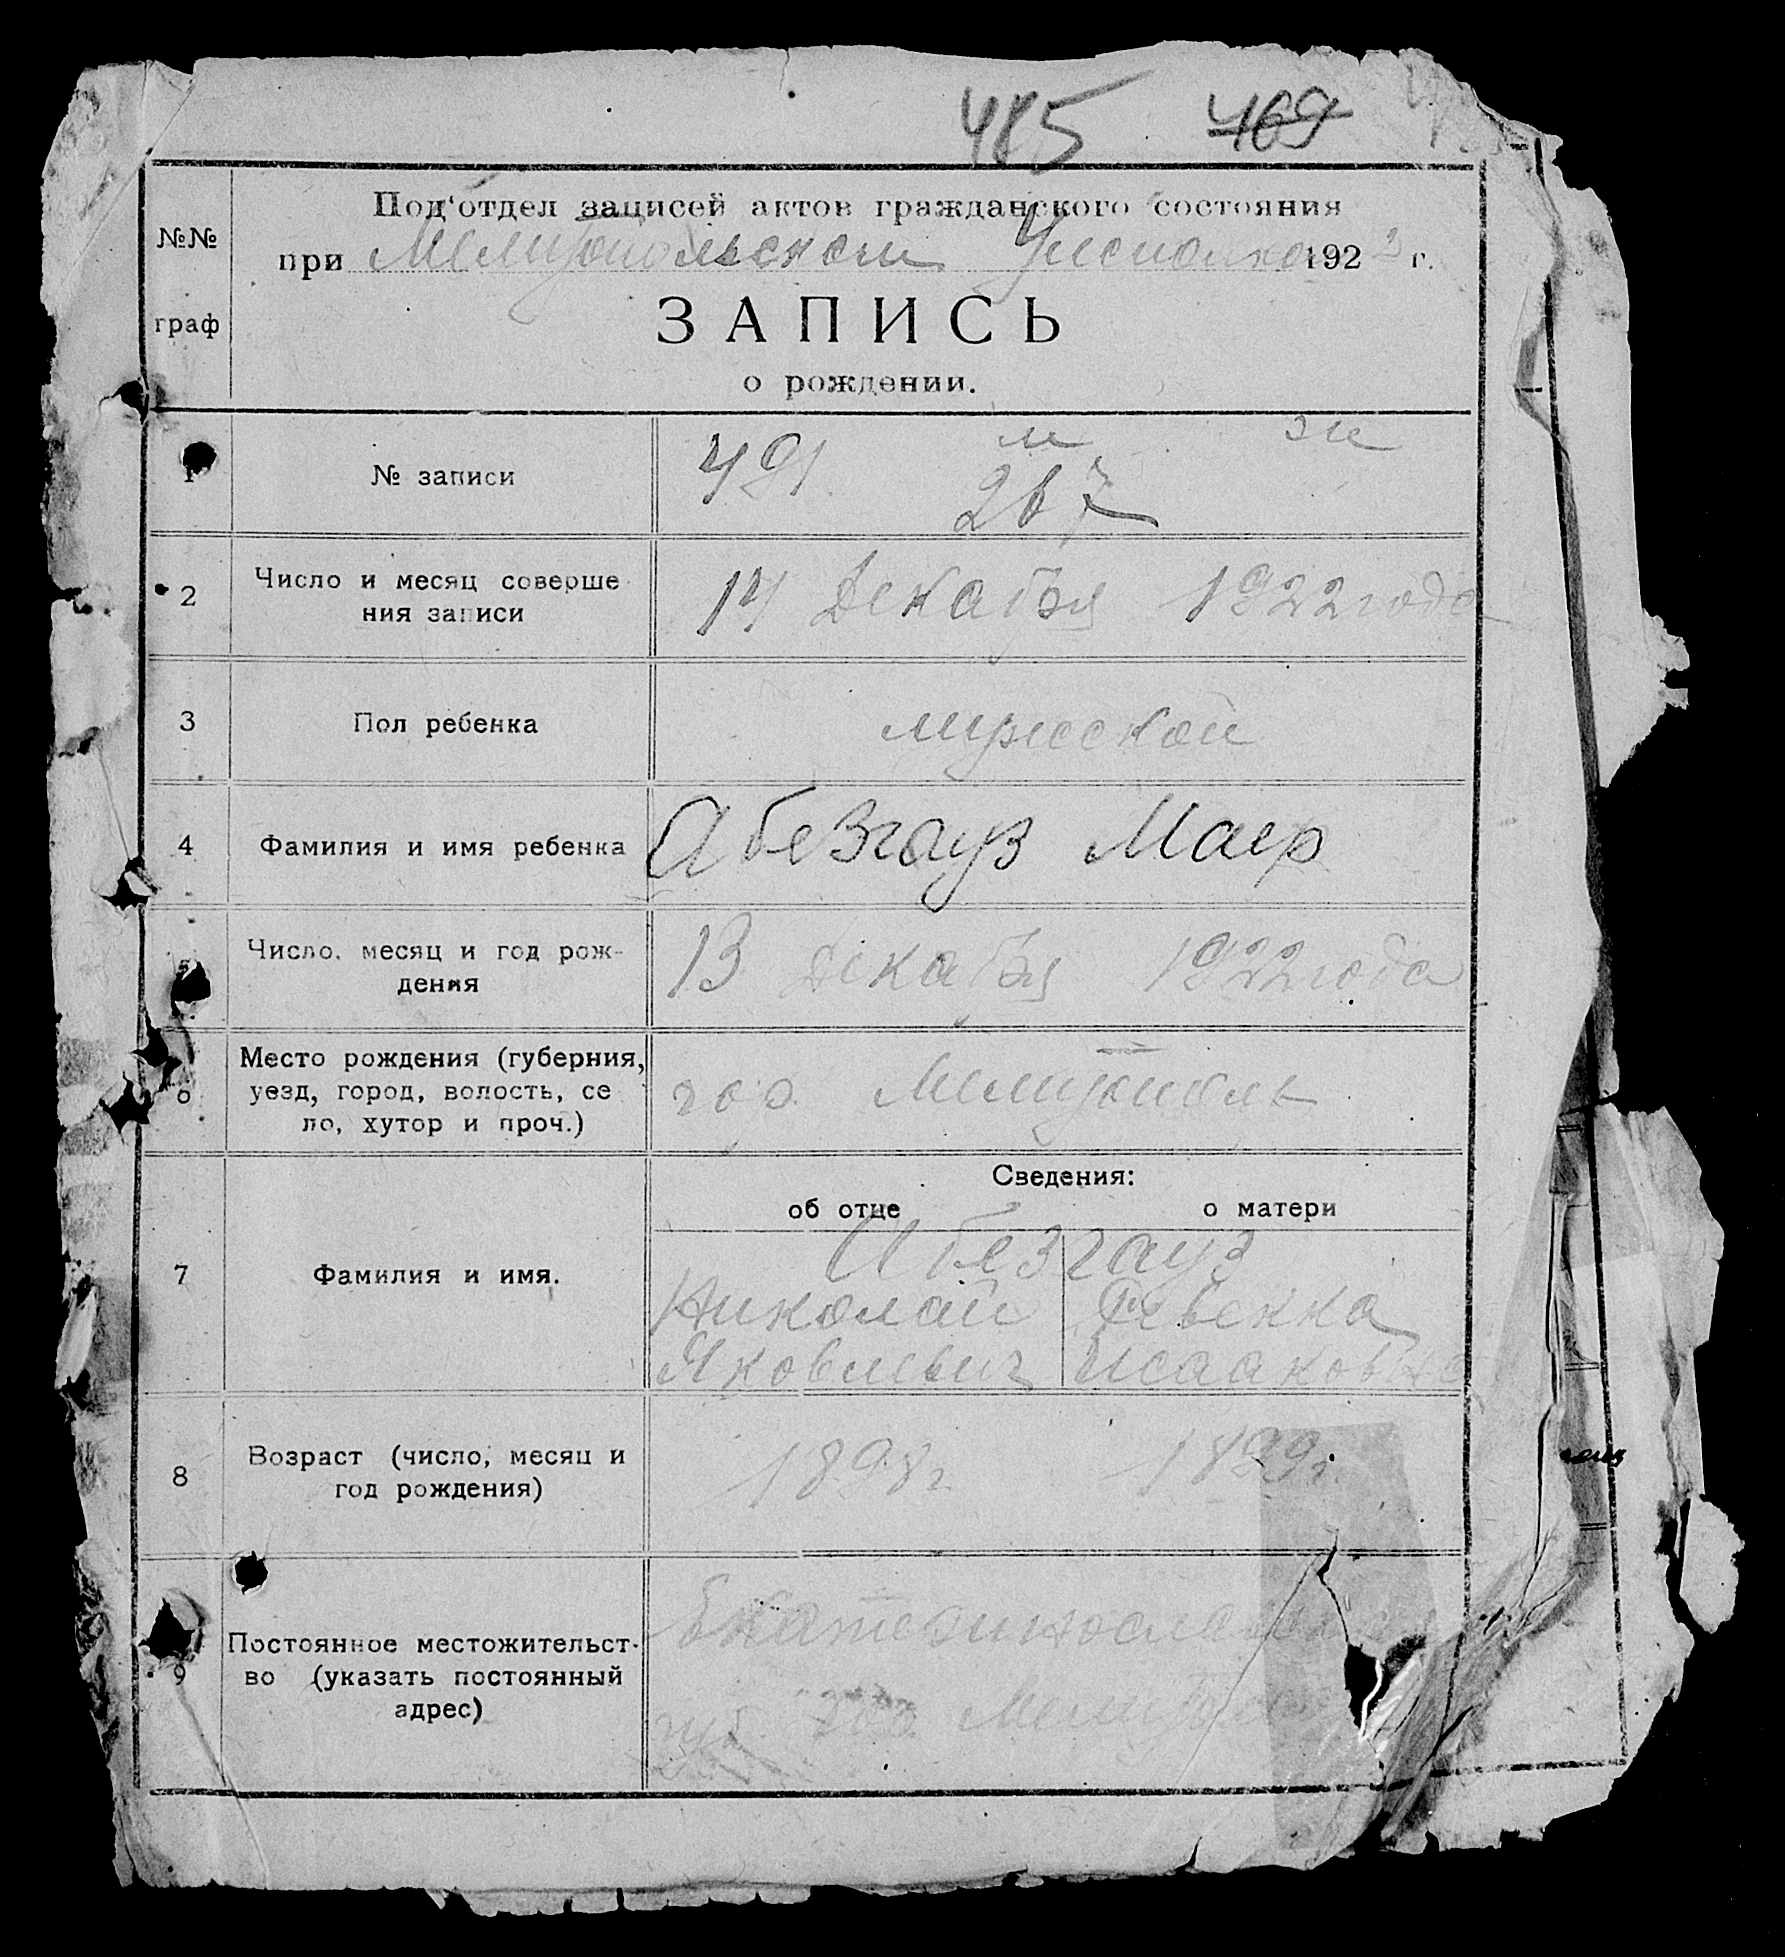 485 469
Под'отдел записей актов гражданского состояния
№№
при Мелитопольском Уисполкоме 1922 г.
граф
ЗАПИСЬ
о рождении.
м ж
1 № записи 491 267
2 Число и месяц соверше
ния записи
14 Декабря 1922 года
3 Пол ребенка мужской
4 Фамилия и имя ребенка Абезгауз Маер
5 Число, месяц и год рож-
дения
13 Декабря 1922 года
Место рождения (губерния,
6 уезд, город, волость, се
ло, хутор и проч.)
гор. Мелитополь
Сведения:
об отце о матери
7 Фамилия и имя.
Абезгауз
Николай Ревекка
Яковлевич Исааковна
8 Возраст (число, месяц и
год рождения)
1898 г 1899 г.
Екатеринославская
Постоянное местожительст-
9 во (указать постоянный
адрес)
губ. гор.